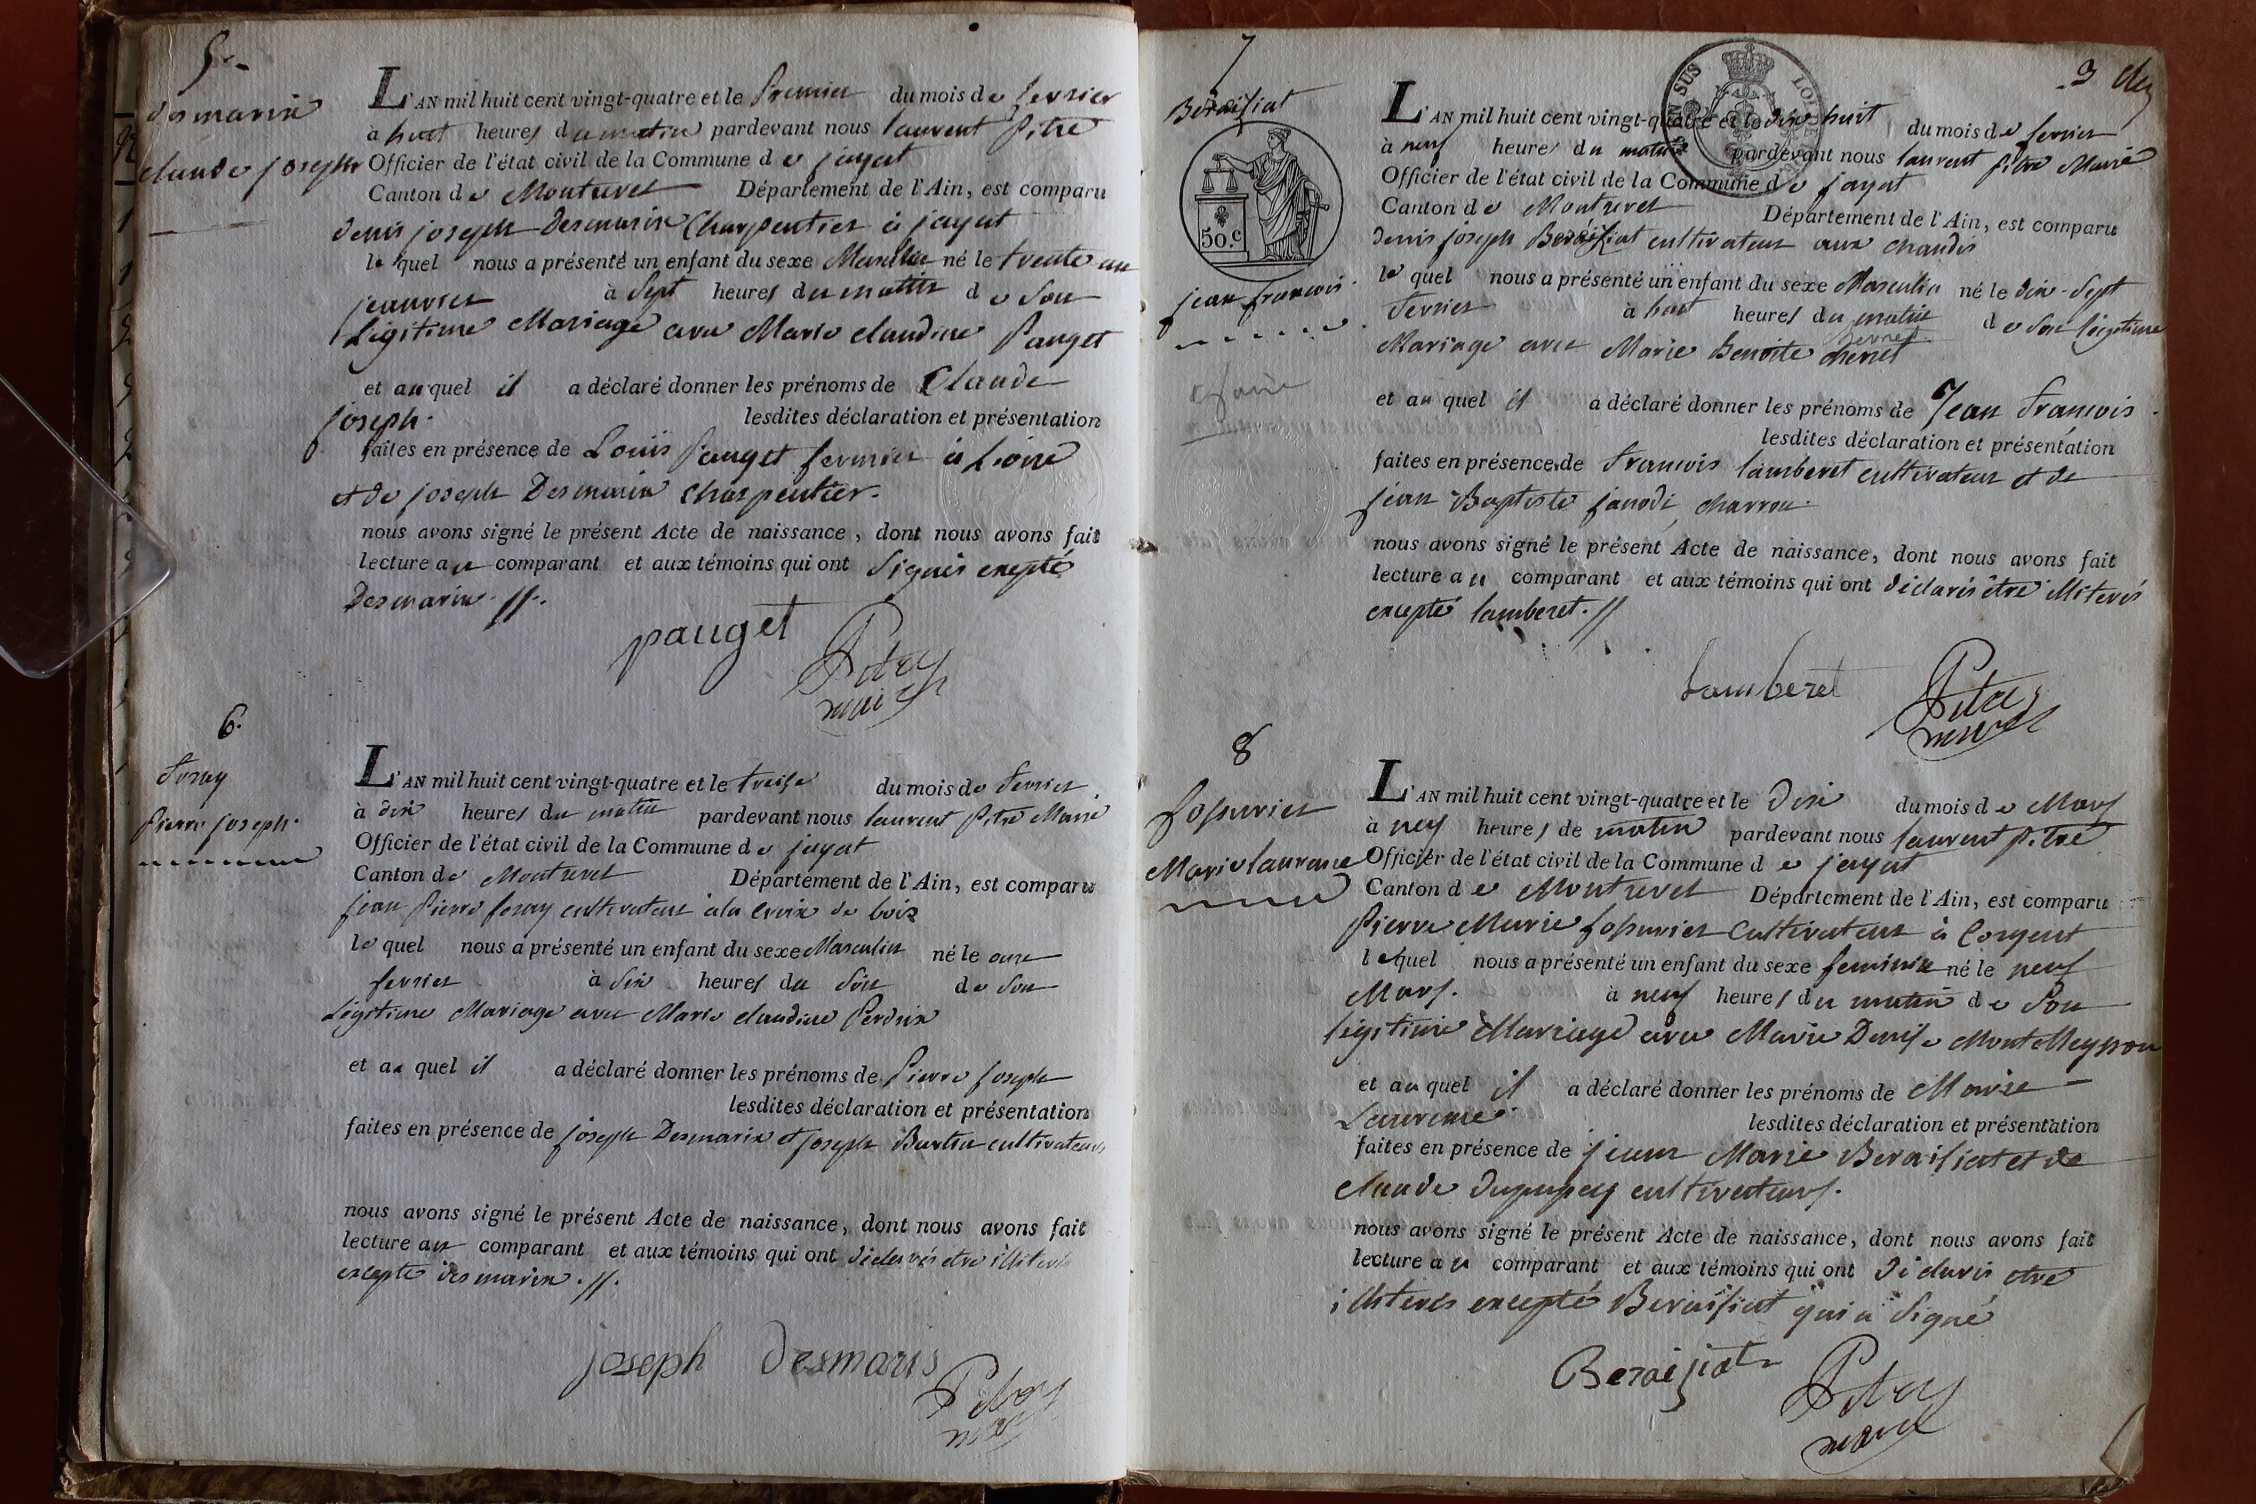 5.
Desmarix
Claude joseph
L'AN mil huit cent vingt-quatre et le Premier du mois de fevrier
à huit heures du matin pardevant nous laurent Pitre
Officier de l'état civil de la Commune de jayat
Canton de Montrevel Département de l'Ain, est comparu
denis joseph Desmarix Charpentier à jayat
le quel nous a présenté un enfant du sexe Masculin né le trente un
janvier à Sept heures du matin de Son
Légitime Mariage avec Marie claudine Pauget
et au quel il a déclaré donner les prénoms de Claude
joseph. lesdites déclaration et présentation
faites en présence de Louis Pauget fermier à
et de joseph Desmarix charpentier.
nous avons signé le présent Acte de naissance, dont nous avons fait
lecture au comparant et aux témoins qui ont Signés excepté
Desmarix. //.
pauget
Pitre
maire
6.
Pierre joseph.
L'AN mil huit cent vingt-quatre et le treize du mois de fevrier
à dix heures du matin pardevant nous laurent Pitre Maire
Officier de l'état civil de la Commune de jayat
Canton de Montrevel Département de l'Ain, est comparu
jean Pierre feray cultivateur à la croix de bois
le quel nous a présenté un enfant du sexe Masculin né le onze
fevrier à Six heures du Soir de Son
Légitime Mariage avec Marie claudine Perdrix
et au quel il a déclaré donner les prénoms de Pierre joseph
lesdites déclaration et présentation
faites en présence de joseph Desmarix et joseph cultivateurs
nous avons signé le présent Acte de naissance, dont nous avons fait
lecture au comparant et aux témoins qui ont déclarés etre illiterés
excepté desmarix. //.
joseph Desmaris
Pitre
maire
7
3
Beraiziat
50.c
jean francois.
L'AN mil huit cent vingt-quatre et le dix huit du mois de fevrier
à neuf heures du matin pardevant nous laurent Pitre Maire
Officier de l'état civil de la Commune de jayat
Canton de Montrevel Département de l'Ain, est comparu
denis joseph Beraiziat cultivateur aux chandis
le quel nous a présenté un enfant du sexe Masculin né le dix-Sept
fevrier à huit heures du matin de Son Légitime
Mariage avec Marie Benoite
et au quel il a déclaré donner les prénoms de Jean François
lesdites déclaration et présentation
faites en présence de francois lamberet cultivateur et de
jean Baptiste janodi charron.
nous avons signé le présent Acte de naissance, dont nous avons fait
lecture au comparant et aux témoins qui ont déclarés être illiterés
excepté lamberet. //
Lamberet
Pitre
maire
8
Marie laurence
L'AN mil huit cent vingt-quatre et le Dix du mois de Mars
à neuf heures de matin pardevant nous laurent Pitre
Officier de l'état civil de la Commune de jayat
Canton de Montrevel Département de l'Ain, est comparu
Pierre Marie Cultivateur à Corgent
lequel nous a présenté un enfant du sexe feminin né le neuf
Mars. à neuf heures du matin de Son
legitime Mariage avec Marie Denise
et au quel il a déclaré donner les prénoms de Marie
Laurence. lesdites déclaration et présentation
faites en présence de jean Marie Beraiziat et de
claude cultivateurs.
nous avons signé le présent Acte de naissance, dont nous avons fait
lecture au comparant et aux témoins qui ont déclarés etre
illiterés excepté Beraiziat qui a Signé
Beraiziat
Pitre
maire